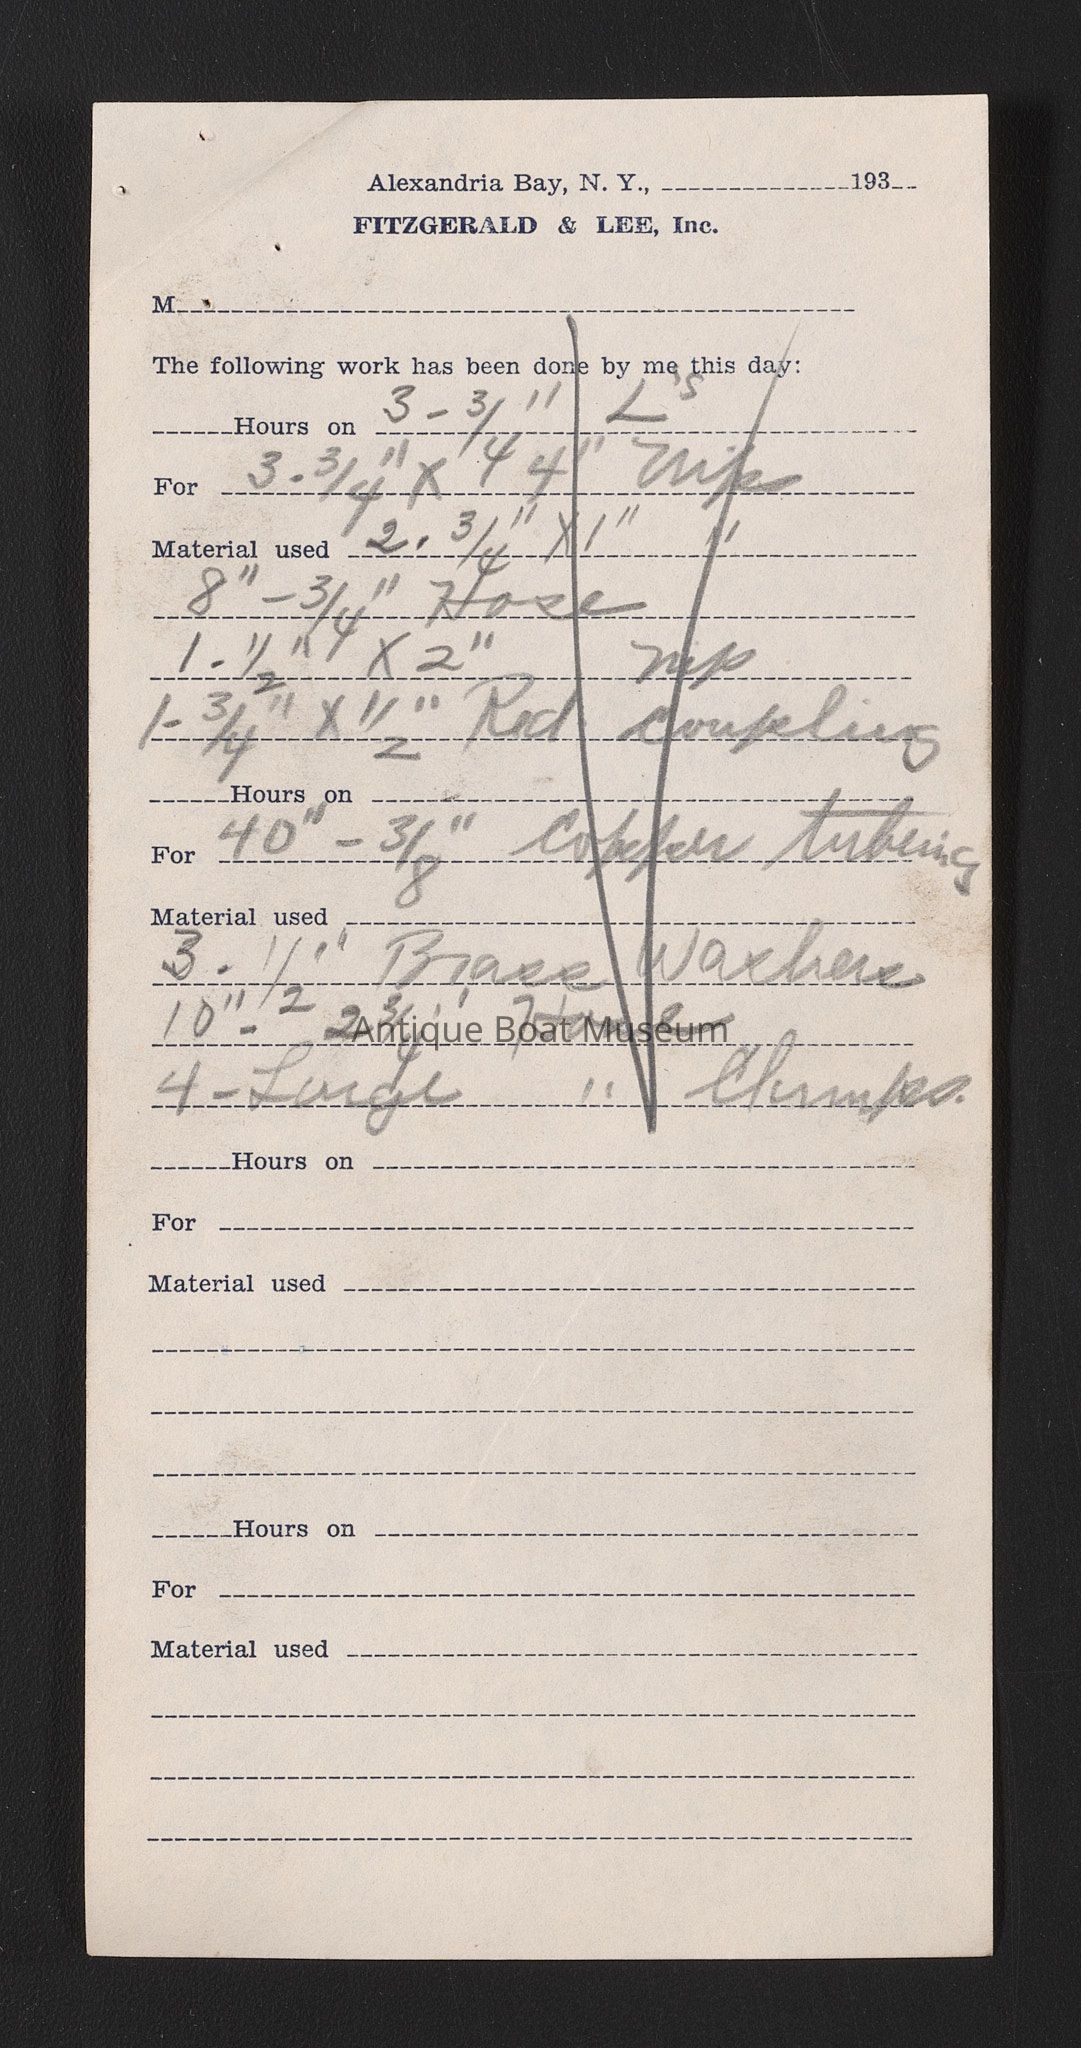 Alexandria Bay, N. Y., 193
FITZGERALD & LEE, Inc.
M
The following work has been done by me this day:
Hours on 3 - 3/4" L's
For 3 - 3/4" X 4" Nip
Material used 2 - 3/4" X 1" "
8" - 3/4" Hose
1 - 1/2" X 2" Nip
1 - 3/4" X 1/2" Red. coupling
Hours on
For 40" - 3/8" Copper tubeing
Material used
3 - 1/2" Brass Washers
10" - 2 3/4" Hose
Antique Boat Museum
4 - Large " Clamps.
Hours on
For
Material used
Hours on
For
Material used